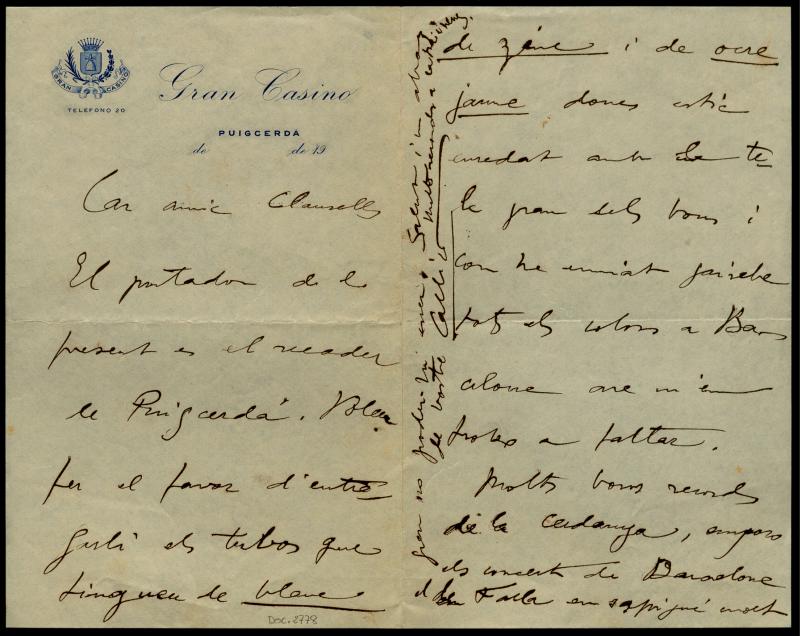 GRAN CASINO
TELEFONO 20
Gran Casino
PUIGCERDÁ
de de 19
Car amic Clausells
El portador de la
present es el recader
de Puigcerdá. Voleu
fer el favor d'entre
garli els tubos que
tingueu de blanc
DOC. 2778
de zinc i de ocre
jaune dones estic
enredat amb la te
la gran dels bous i
com he enviat gairebe
tots els colors a Bar
celone are m'en
trobo a faltar.
Molts bons records
de la Cerdanya, empero
els concerts de Barcelone
de Falla em sapigué molt
greu no poder-hi
Salut i
de vostè